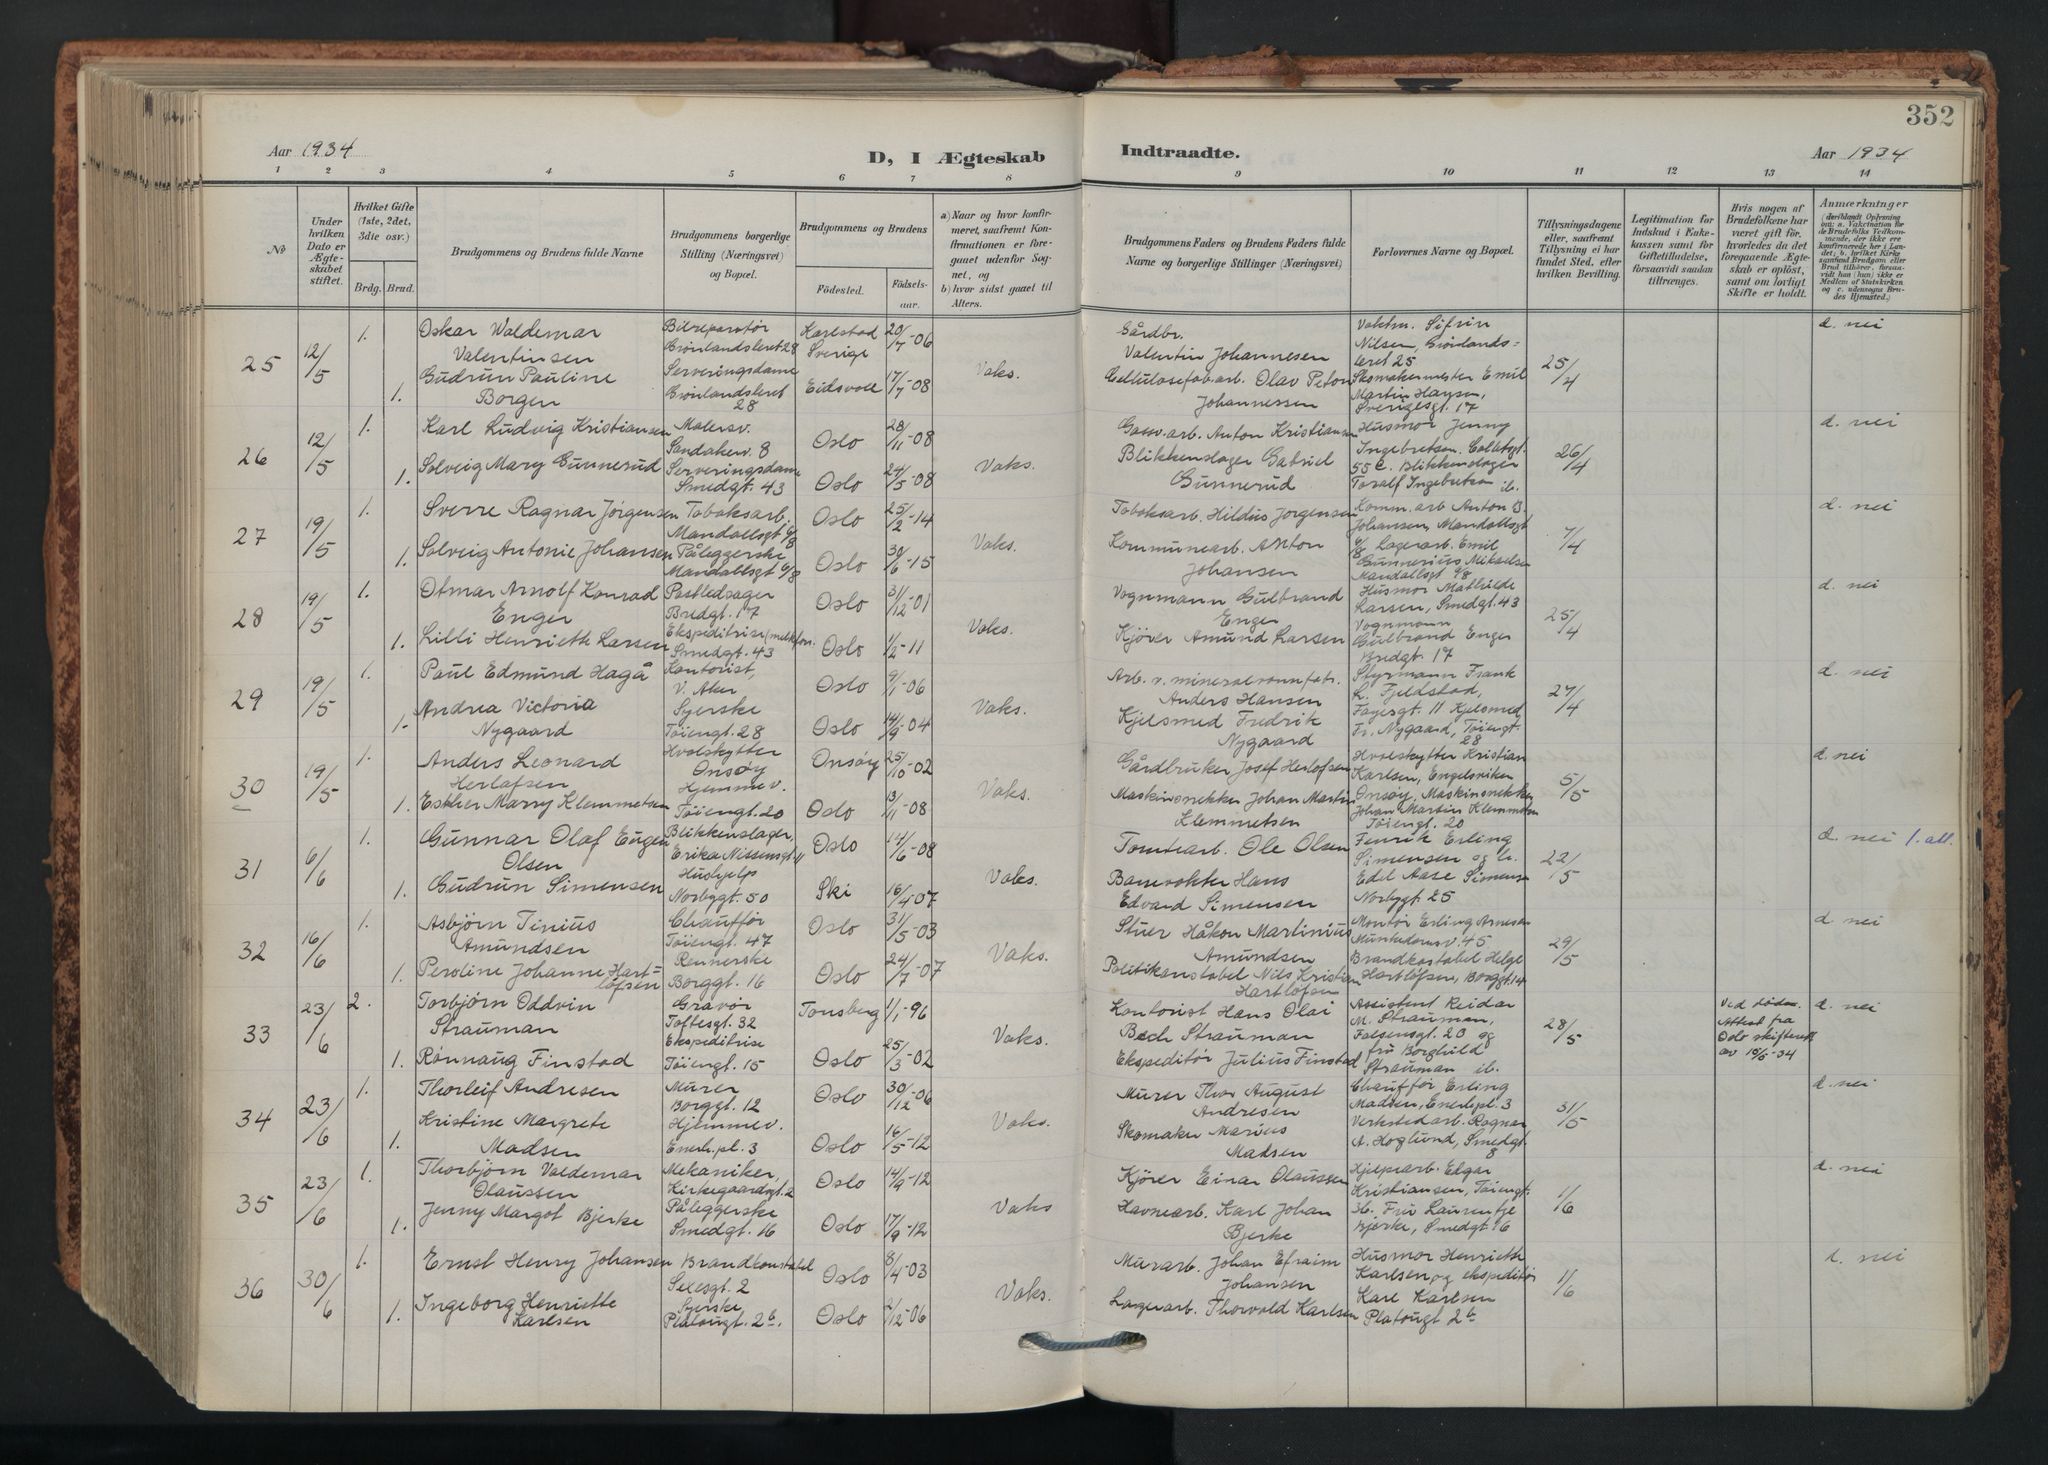 352
Aar 1934
D, I Ægteskab Indtraadte.
Aar 1934
1 2 3 4 5 6 7 8 9 10 11 12 13 14
No
Under hvilken Dato er Ægteskabet stiftet.
Hvilket Gifte (1ste, 2det, 3die osv.)
Brdg. Brud.
Brudgommens og Brudens fulde Navne
Brudgommens borgerlige Stilling (Næringsvei) og Bopæl.
Brudgommens og Brudens
Födested. Födselsaar.
a) Naar og hvor konfirmeret, saafremt Konfirmationen er foregaaet udenfor Sognet, og
b) hvor sidst gaaet til Alters.
Brudgommens Faders og Brudens Faders fulde Navne og borgerlige Stillinger (Næringsvei)
Forlovernes Navne og Bopæl.
Tillysningsdagene eller, saafremt Tillysning ei har fundet Sted, efter hvilken Bevilling.
Legitimation for Indskud i Enkekassen samt for Giftetilladelse, forsaavidt saadan tiltrænges.
Hvis nogen af Brudefolkene har været gift för, hvorledes da det foregaaende Ægteskab er oplöst, samt om lovligt Skifte er holdt.
Anmærkninger
25 12/5 1. Oskar Waldemar Valentinsen Bilreparatør Grønlandsleret 28 Karlstad Sverige 20/7-06 Vaks. Gårdbr. Valentin Johannesen Vaktm. Sifrin Nilsen, Grønlandsleret 25 25/4 d. nei
1. Gudrun Pauline Borgen Serveringsdame Grønlandsleret 28 Eidsvoll 17/7-08 Cellulosefab.arb. Olav Peton Johannessen Skomakermester Emil Martin Hansen, Sverigesgt. 17
26 12/5 1. Karl Ludvig Kristiansen Malersv. Sandakerv. 8 Oslo 28/11-08 Vaks. Gassv.arb. Anton Kristiansen Husmor Jenny Ingebretsen, 26/4 d. nei
1. Solveig Mary Gunnerud Serveringsdame Smedgt. 43 Oslo 24/5-08 Blikkenslager Gabriel Gunnerud 55 C. Blikkenslager Toralf Ingebretsen ib.
27 19/5 1. Sverre Ragnar Jørgensen Tobaksarb. Mandallsgt 6/8 Oslo 25/2-14 Vaks. Tobaksarb. Hildus Jørgensen Komm. arb Anton B Johansen, Mandallsgt 6/8 7/4 d. nei
1. Solveig Antonie Johansen Påleggerske Mandallsgt 6/8 Oslo 30/6-15 Kommunearb. Anton Johansen Lagerarb. Emil Gunnerius Mikaelsen Mandallsgt 6/8
28 19/5 1. Otmar Arnolf Konrad Enger Postledsager Bredgt. 17 Oslo 31/12-01 Vaks. Vognmann Gulbrand Enger Husmor Mathilde Larsen, Smedgt. 43 25/4 d. nei
1. Lilli Henriette Larsen Ekspeditrise (melkfor. Smedgt. 43 Oslo 1/2-11 Kjører Amund Larsen Vognmann Gulbrand Enger Bredgt. 17
29 19/5 1. Paul Edmund Hagå Kontorist, V. Aker Oslo 9/1-06 Vaks. Arb. v. mineralvannfabr. Anders Hansen Styrmann Frank L. Fjeldstad, Fayesgt. 11 27/4 d. nei
1. Andrea Victoria Nygaard Syerske Tøiengt. 28 Oslo 14/9-04 Kjelsmed Fredrik Nygaard Kjelsmed Fr. Nygaard, Tøiengt. 28
30 19/5 1. Anders Leonard Herlofsen Hvalskytter Onsøy Onsøy 25/10-02 Vaks. Gårdbruker Josef Herlofsen Hvalskytter Kristian Karlsen, Engelsviken Onsøy, 5/5 d. nei
1. Esther Marry Klemmetsen Hjemmev. Tøiengt. 20 Oslo 13/11-08 Maskinsnekker Johan Martin Klemmetsen Maskinsnekker Johan Martin Klemmetsen Tøiengt. 20
31 6/6 1. Gunnar Olaf Eugen Olsen Blikkenslager, Erika Nissensgt. 11 Oslo 14/6-08 Vaks. Tomtearb. Ole Olsen Henrik Erling Simensen og 22/5 d. nei 1. att.
1. Gudrun Simensen Hushjelp Norbygt. 50 Ski 16/4-07 Banevokter Hans Edvard Simensen Edel Aase Simensen Norbygt. 25
32 16/6 1. Asbjørn Tinius Amundsen Chauffør Tøiengt. 47 Oslo 31/5-03 Vaks. Stuer Håkon Martinius Amundsen Montør Erling Arnesen Munkedamsv. 45 29/5 d. nei
1. Peroline Johanne Hartlofsen Rennerske Borggt. 16 Oslo 24/7-07 Politikonstabel Nils Kristian Hartlofsen Brandkostabel Helge Hartlofsen, Borggt. 14
33 23/6 2. Torbjørn Oddvin Strauman Gravør Toftesgt. 32 Tønsberg 1/1-96 Vaks. Kontorist Hans Olai Bech Strauman Assistent Reidar M. Strauman, Falsensgt. 20 og 28/5 Ved døden. Attest fra Oslo skifterett av 19/5-34 d. nei
1. Rønnaug Finstad Ekspeditrise Tøiengt. 15 Oslo 25/3-02 Ekspeditør Julius Finstad fru Borghild Strauman ib.
34 23/6 1. Thorleif Andresen Murer Borggt. 12 Oslo 30/12-06 Vaks. Murer Thor August Andresen Chauffør Erling Madsen, Enerh.pl. 3 31/5 d. nei
1. Kristine Margrete Madsen Hjemmev. Enerh.pl. 3 Oslo 16/5-12 Skomaker Marius Madsen Verkstedarb. Ragnar A. Hoglund, Smedgt. 8
35 23/6 1. Thorbjørn Valdemar Olaussen Mekaniker, Kirkegaardsgt. 2 Oslo 14/9-12 Vaks Kjører Einar Olaussen Hjelpearb. Edgar Kristiansen, Tøiengt. 36. 1/6 d. nei
1. Jenny Margot Bjerke Påleggerske Smedgt. 16 Oslo 17/9-12 Havnearb. Karl Johan Bjerke Fru Laurentje Bjerke, Smedgt. 16
36 30/6 1. Ernst Henry Johansen Brandkonstabel Sexesgt. 2 Oslo 8/4-03 Vaks. Murarb. Johan Efraim Johansen Husmor Henriette Karlsen og ekspeditør 1/6 d. nei
1. Ingeborg Henriette Karlsen Syerske Platougt. 2b. Oslo 2/12-06 Lagerarb. Thorvald Karlsen Karl Karlsen Platougt 2b